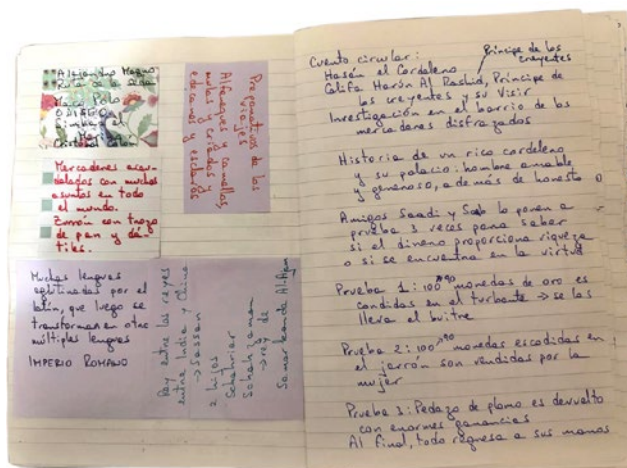 Alejandro Magno
Ruta de la seda
Marco Polo
ODISEA
Simbad el
Marino
Cristóbal Colón
Mercaderes acau-
dalados con muchos
asuntos en todo
el mundo.
Zurrón con trozo
de pan y dá-
tiles.
Preparativos de los
viajes
Alfanjes y camellos,
mulas y criados y
eunucos y esclavos
Muchas lenguas
aglutinadas por el
latín, que luego se
transforman en otras
múltiples lenguas
IMPERIO ROMANO
Rey entre los reyes
entre India y China
→ Sassan
2 hijos
Schahriar
Schahzaman
→ rey de
Samarkanda Al-Ajam
Cuento circular:
Príncipe de los
creyentes
Hasán el Cordelero
Califa Harún Al Rashid, Príncipe de
los creyentes y su Visir
Investigación en el barrio de los
mercaderes disfrazados
Historia de un rico cordelero
y su palacio: hombre amable
y generoso, además de honesto
Amigos Saadi y Sab lo ponen a
prueba 3 veces para saber
si el dinero proporciona riqueza
o si se encuentra en la virtud
Prueba 1: 100 monedas de oro es
condidas en el turbante → se las
lleva el buitre
Prueba 2: 100 monedas escodidas en
el jarrón son vendidas por la
mujer
Prueba 3: Pedazo de plomo es devuelto
con enormes ganancias
Al final, todo regresa a sus manos